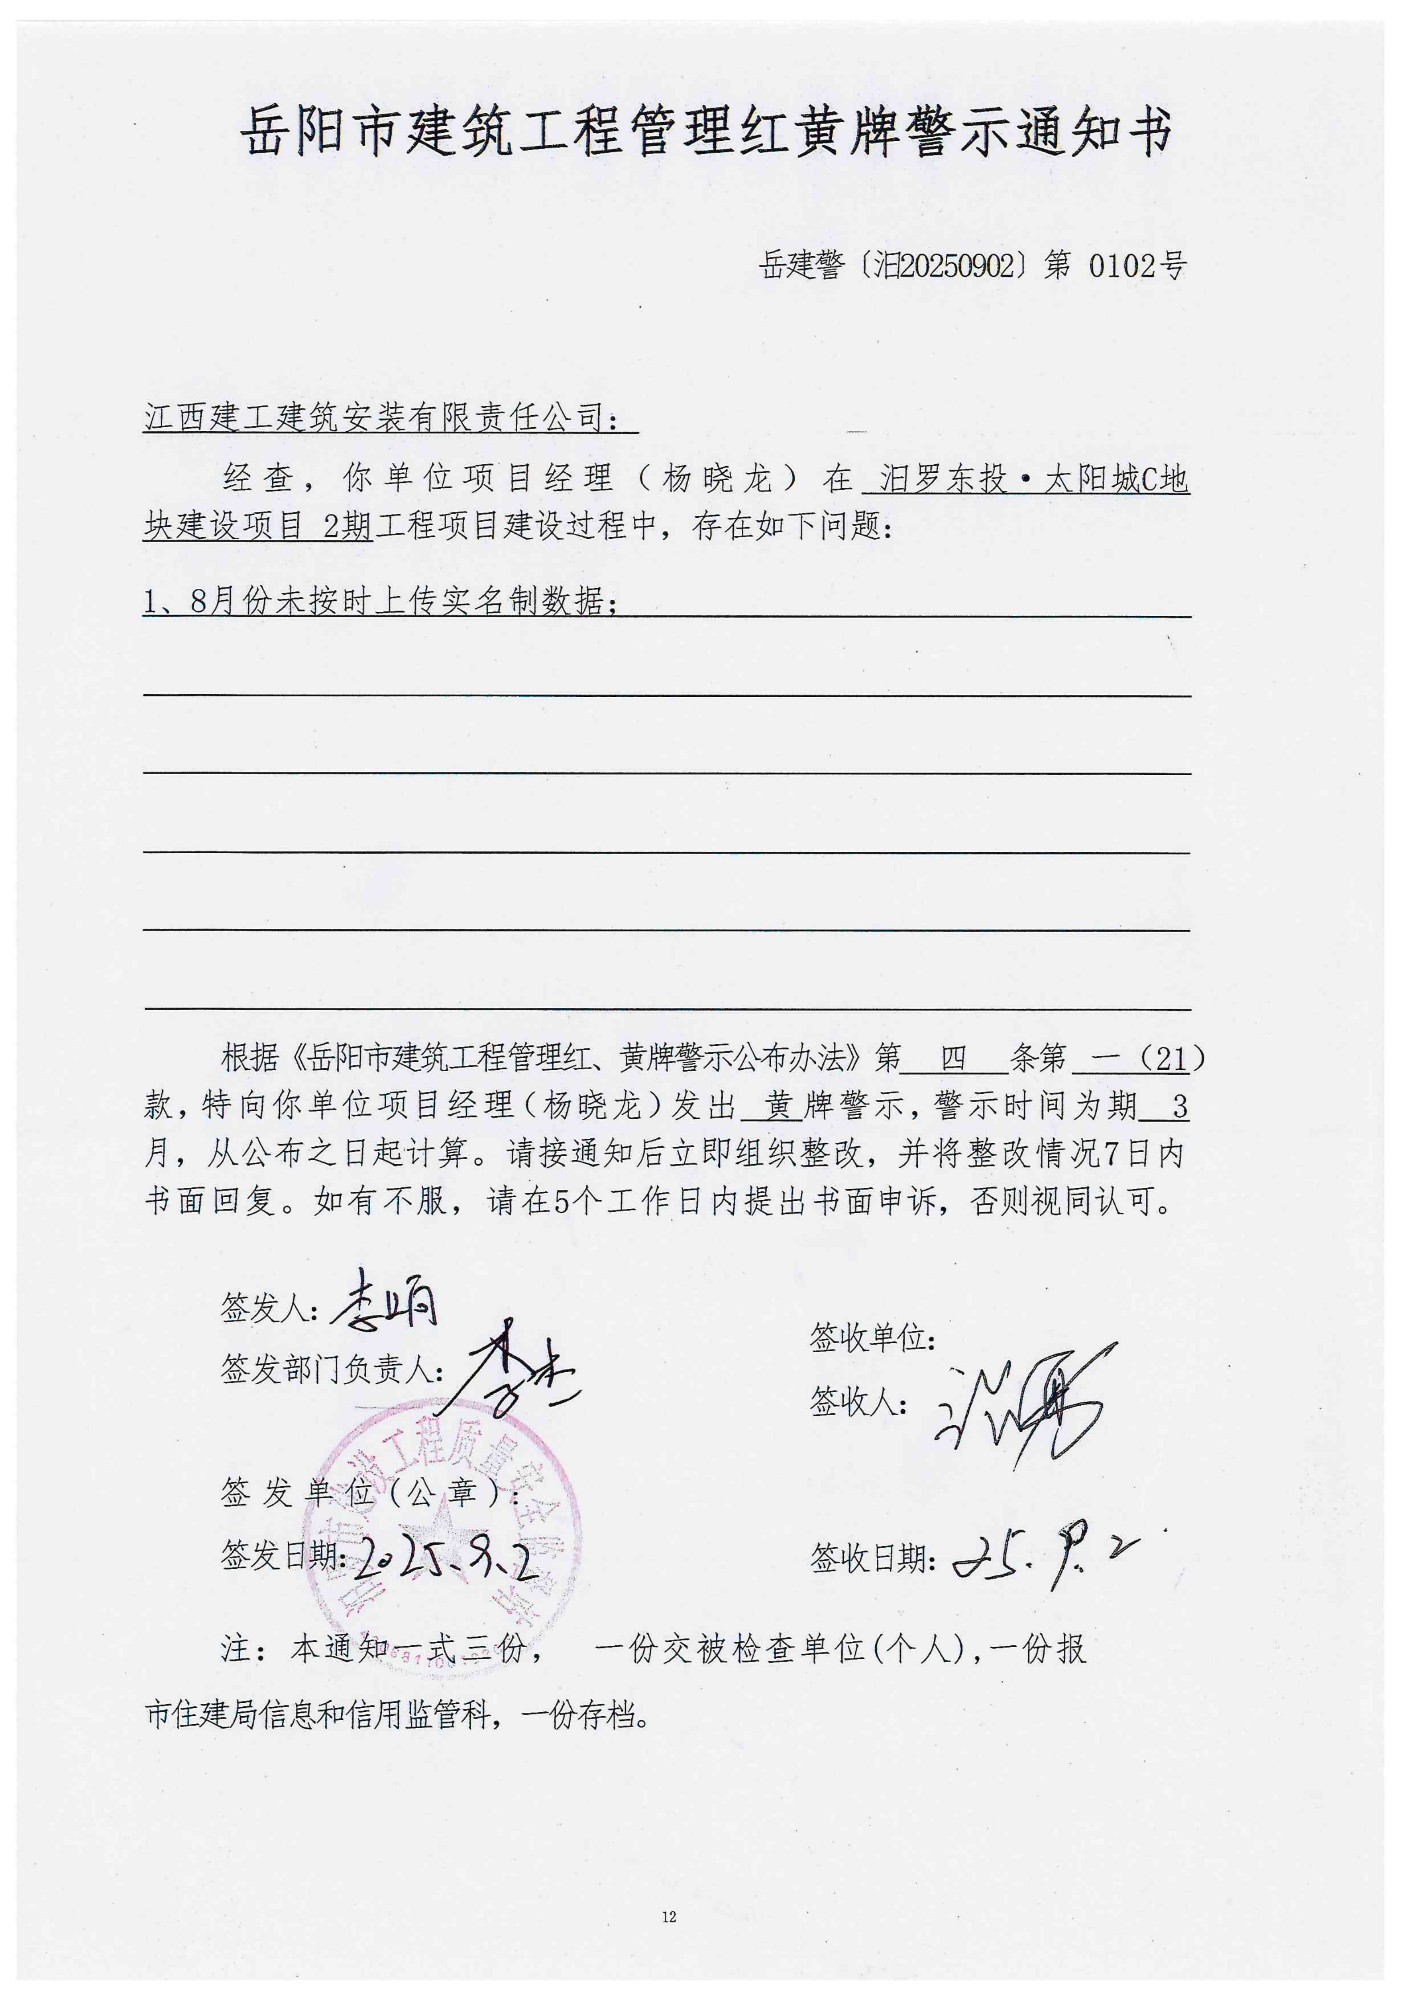 岳阳市建筑工程管理红黄牌警示通知书
岳建警〔汨20250902〕第 0102号
江西建工建筑安装有限责任公司：
经查，你单位项目经理（杨晓龙）在 汨罗东投·太阳城C地
块建设项目 2期工程项目建设过程中，存在如下问题：
1、8月份未按时上传实名制数据；
根据《岳阳市建筑工程管理红、黄牌警示公布办法》第 四 条第 一（21）
款，特向你单位项目经理（杨晓龙）发出 黄 牌警示，警示时间为期 3
月，从公布之日起计算。请接通知后立即组织整改，并将整改情况7日内
书面回复。如有不服，请在5个工作日内提出书面申诉，否则视同认可。
签发人：
签发部门负责人：李杰
签收单位：
签收人：
工程质量安全监督站
签发单位(公章)：
签发日期：2025.9.2
签收日期：25.9.2
注：本通知一式三份， 一份交被检查单位(个人),一份报
市住建局信息和信用监管科，一份存档。
12